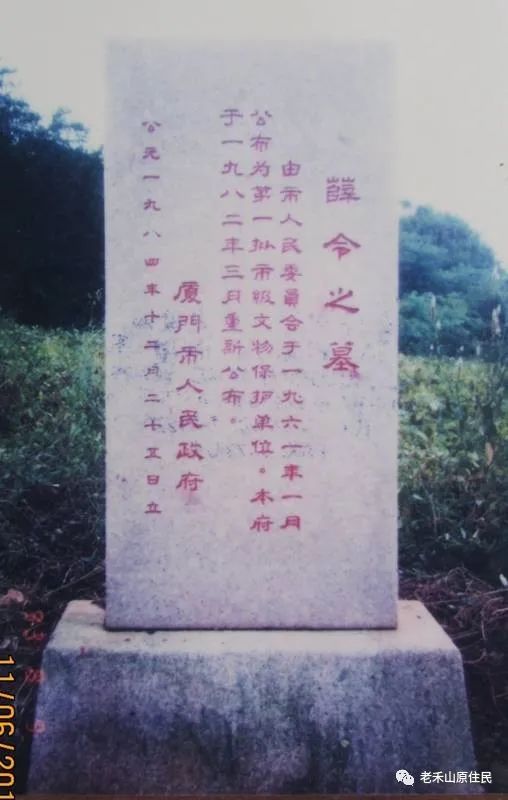 薛令之墓
由市人民委員会于一九六一年一月
公布为第一批市级文物保护单位。本府
于一九八二年三月重新公布。
厦門市人民政府
公元一九八四年十二月二十五日立
11/06/201
老禾山原住民